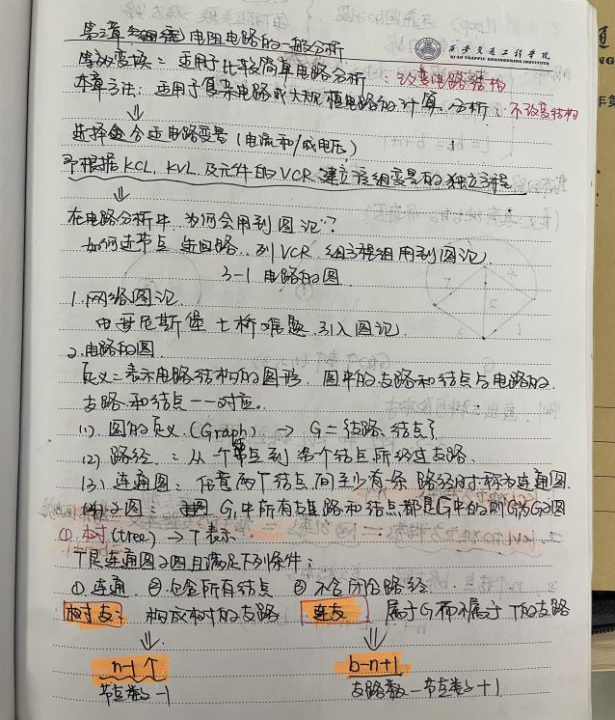 第三章 电阻电路的一般分析
西安交通工程学院
XI'AN TRAFFIC ENGINEERING INSTITUTE
等效变换:适用于比较简单电路分析:改变电路结构
本章方法:适用于复杂电路或大规模电路的计算、分析:不改变结构
⇓
选择合适电路变量(电流和/或电压)
根据KCL、KVL及元件的VCR建立该组变量的独立方程
⇓
在电路分析中,为何会用到图论?
如何选节点 选回路..列VCR 组方程组用到图论
3-1 电路的图
1.网络图论
由哥尼斯堡七桥难题.引入图论
2.电路的图
定义:表示电路结构的图形 图中的支路和结点与电路的
支路和结点一一对应。
(1).图的定义.(Graph) → G={支路、结点}
(2).路径:从一个节点到某个结点所经过支路.
(3).连通图:任意两个结点间至少有一条路径时称为连通图
子图: G₁中所有支路和结点都是G中的则G₁为G子图
①树(tree) → T表示
T是连通图子图且满足下列条件:
①.连通 ②包含所有结点 ③不含闭合路径
树支:构成树的支路 连支 属于G而不属于T的支路
⇓ ⇓
n-1个 b-n+1
节点数-1 支路数-节点数+1